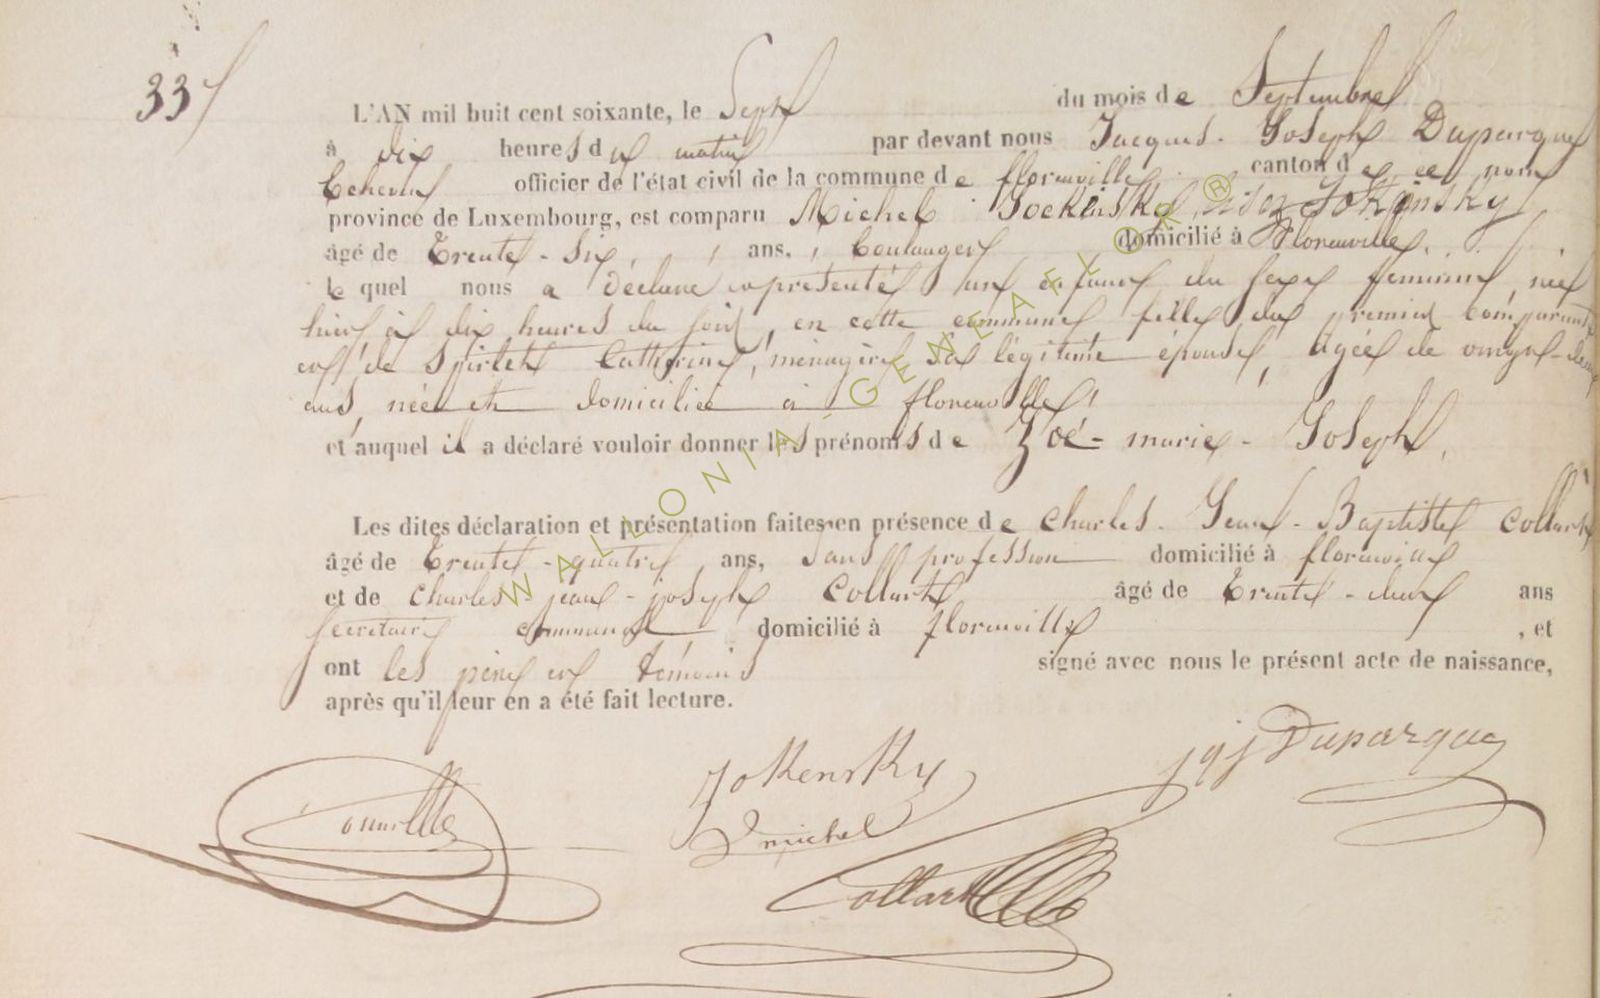 33
L'AN mil huit cent soixante, le Sept du mois de Septembre
à dix heures du matin par devant nous Jacques-Joseph Duparque
Echevin officier de l'état civil de la commune de florenville canton de ce nom
province de Luxembourg, est comparu Michel Jockinsky Jokinsky
âgé de Trente-Six ans, Boulanger domicilié à Florenville.
le quel nous a déclaré et présenté un enfant du sexe féminin, née
hier à dix heures du soir, en cette commune, fille du premier comparant
et de Spirlet Catherine, ménagère, sa légitime épouse, agée de vingt-deux
ans, née et domiciliée à florenville,
et auquel il a déclaré vouloir donner les prénoms de Zoé-marie-Joseph,
Les dites déclaration et présentation faites en présence de Charles-Jean-Baptiste Collart
âgé de Trente-quatre ans, Sans profession domicilié à florenville
et de Charles-jean-joseph Collart âgé de Trente-deux ans
secrétaire communal domicilié à florenville, et
ont les père et témoins signé avec nous le présent acte de naissance,
après qu'il leur en a été fait lecture.
jqjDuparque
Jokensky
michel
Collart
WALLONIA-GENEAFLOR®